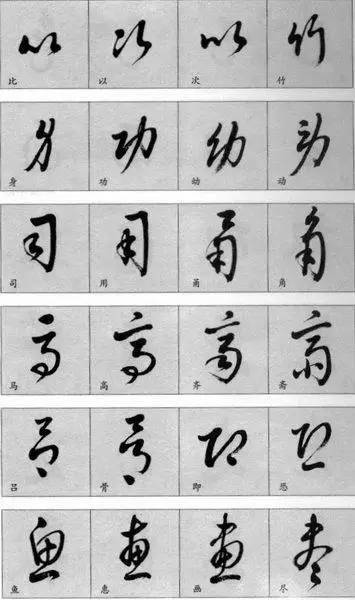 比 以 次 竹
身 功 幼 动
司 用 甬 角
马 高 齐 斋
吕 骨 即
鱼 惠 画 尽